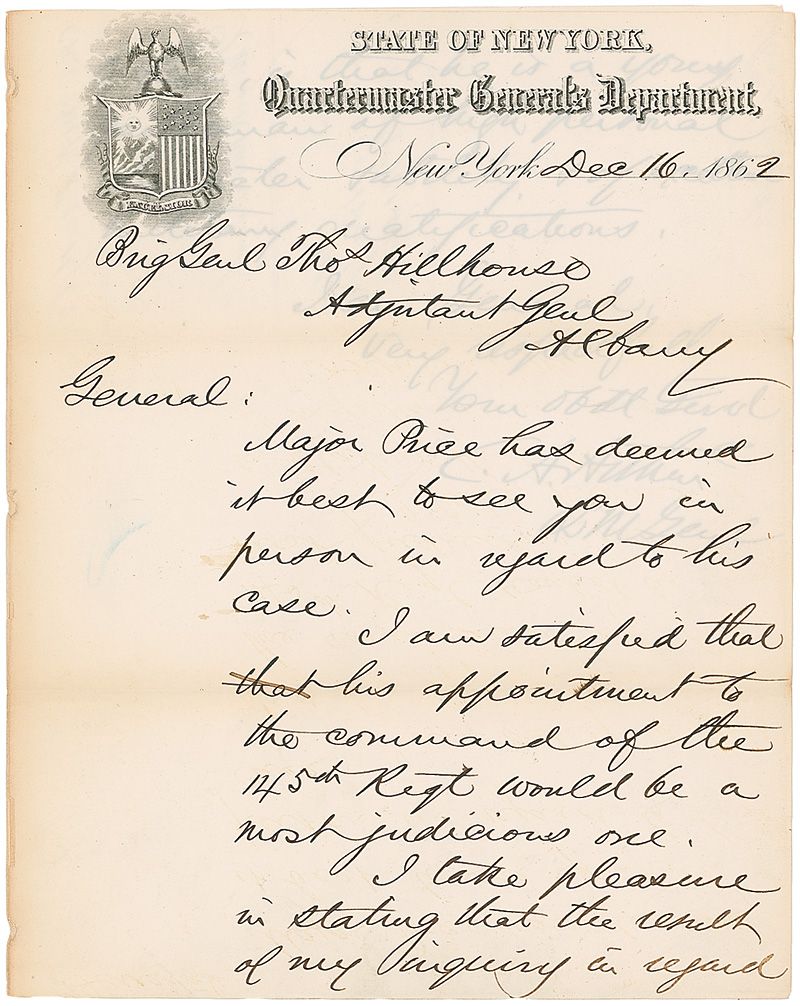 STATE OF NEW YORK,
Quartermaster General's Department,
New York Dec 16. 1862
EXCELSIOR
Brig Genl Thos Hillhouse
Adjutant Genl
Albany
General:
Major Price has deemed
it best to see you in
person in regard to his
case.
I am satisfied that
that his appointment to
the command of the
145th Regt would be a
most judicious one.
I take pleasure
in stating that the result
of my inquiry in regard